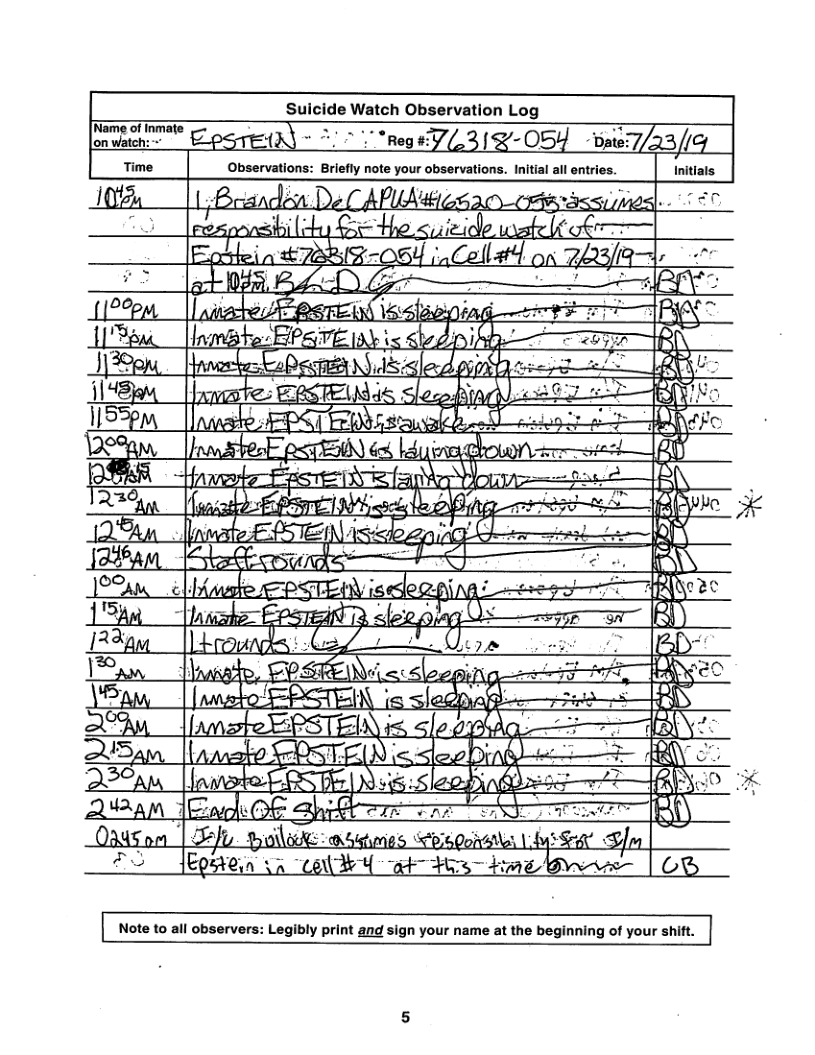 Suicide Watch Observation Log
Name of Inmate on watch: EPSTEIN Reg #: 76318-054 Date: 7/23/19
Time Observations: Briefly note your observations. Initial all entries. Initials
1045PM I, Brandon DeCAPUA #16520-055 assumes
responsibility for the suicide watch of
Epstein #76318-054 in Cell #4 on 7/23/19
at 1045PM. BD
1100PM Inmate EPSTEIN is sleeping BD
1115PM Inmate EPSTEIN is sleeping BD
1130PM Inmate EPSTEIN is sleeping BD
1145PM Inmate EPSTEIN is sleeping BD
1155PM Inmate EPSTEIN is awake BD
1200AM Inmate EPSTEIN is laying down BD
1215AM Inmate EPSTEIN is laying down BD
1230AM Inmate EPSTEIN is sleeping BD *
1245AM Inmate EPSTEIN is sleeping BD
1246AM Staff rounds BD
100AM Inmate EPSTEIN is sleeping BD
115AM Inmate EPSTEIN is sleeping BD
122AM Lt rounds BD
130AM Inmate EPSTEIN is sleeping BD
145AM Inmate EPSTEIN is sleeping BD
200AM Inmate EPSTEIN is sleeping BD
215AM Inmate EPSTEIN is sleeping BD
230AM Inmate EPSTEIN is sleeping BD *
242AM End Of Shift BD
0245am I/C Bullock assumes responsibility for I/m
Epstein in cell # 4 at this time CB
Note to all observers: Legibly print and sign your name at the beginning of your shift.
5